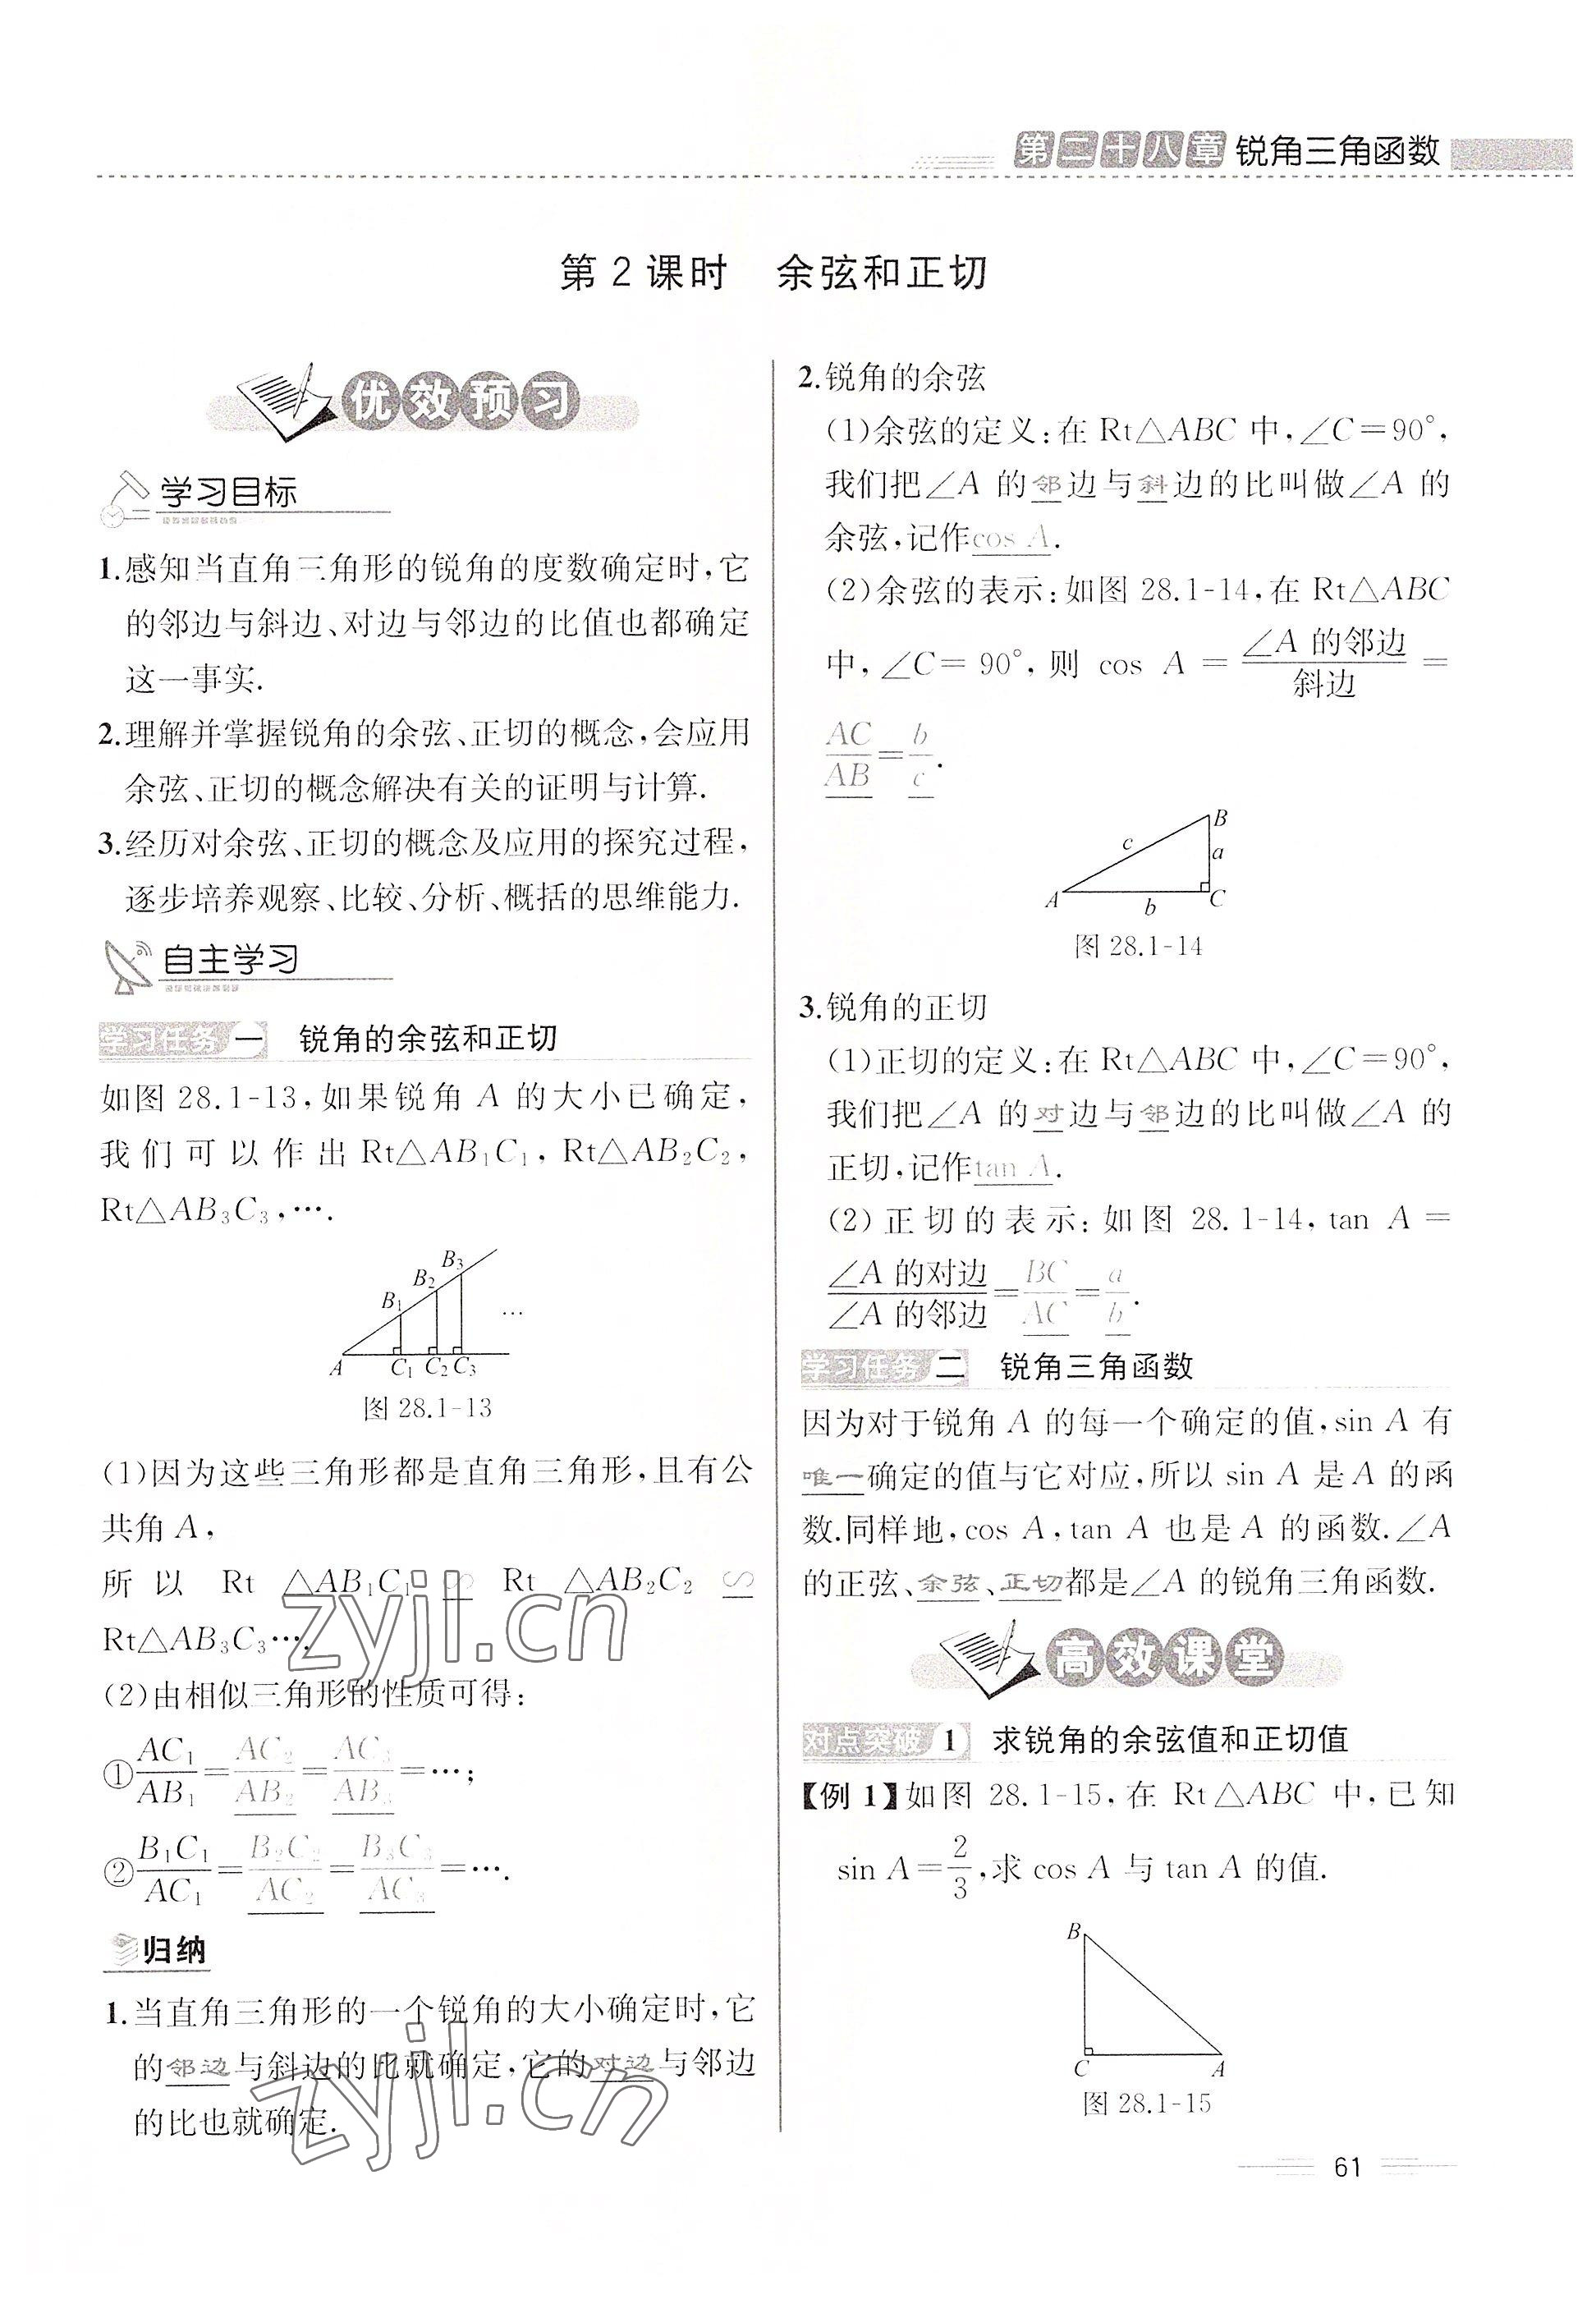 第二十八章 锐角三角函数
第 2 课时 余弦和正切
优效预习
学习目标
1.感知当直角三角形的锐角的度数确定时,它
的邻边与斜边、对边与邻边的比值也都确定
这一事实.
2.理解并掌握锐角的余弦、正切的概念,会应用
余弦、正切的概念解决有关的证明与计算.
3.经历对余弦、正切的概念及应用的探究过程,
逐步培养观察、比较、分析、概括的思维能力.
自主学习
学习任务 一 锐角的余弦和正切
如图 28.1-13,如果锐角 A 的大小已确定,
我们可以作出 Rt△AB₁C₁, Rt△AB₂C₂,
Rt△AB₃C₃,….
B₃
B₂
B₁
…
A C₁ C₂ C₃
图 28.1-13
(1)因为这些三角形都是直角三角形,且有公
共角 A,
所以 Rt △AB₁C₁ ∽ Rt △AB₂C₂ ∽
Rt△AB₃C₃….
(2)由相似三角形的性质可得:
①AC₁/AB₁=AC₂/AB₂=AC₃/AB₃=…;
②B₁C₁/AC₁=B₂C₂/AC₂=B₃C₃/AC₃=….
归纳
1.当直角三角形的一个锐角的大小确定时,它
的邻边与斜边的比就确定,它的对边与邻边
的比也就确定.
2.锐角的余弦
(1)余弦的定义:在 Rt△ABC 中,∠C=90°,
我们把∠A 的邻边与斜边的比叫做∠A 的
余弦,记作cos A.
(2)余弦的表示:如图 28.1-14,在 Rt△ABC
中,∠C= 90°,则 cos A =∠A 的邻边/斜边=
AC/AB=b/c.
B
c
a
A
b
C
图 28.1-14
3.锐角的正切
(1)正切的定义:在 Rt△ABC 中,∠C=90°,
我们把∠A 的对边与邻边的比叫做∠A 的
正切,记作tan A.
(2)正切的表示:如图 28.1-14, tan A =
∠A 的对边/∠A 的邻边=BC/AC=a/b.
学习任务 二 锐角三角函数
因为对于锐角 A 的每一个确定的值,sin A 有
唯一确定的值与它对应,所以 sin A 是 A 的函
数.同样地,cos A,tan A 也是 A 的函数.∠A
的正弦、余弦、正切都是∠A 的锐角三角函数.
高效课堂
对点突破 1 求锐角的余弦值和正切值
【例 1】如图 28.1-15,在 Rt△ABC 中,已知
sin A=2/3,求 cos A 与 tan A 的值.
B
C
A
图 28.1-15
61
zyjl.cn
zyjl.cn